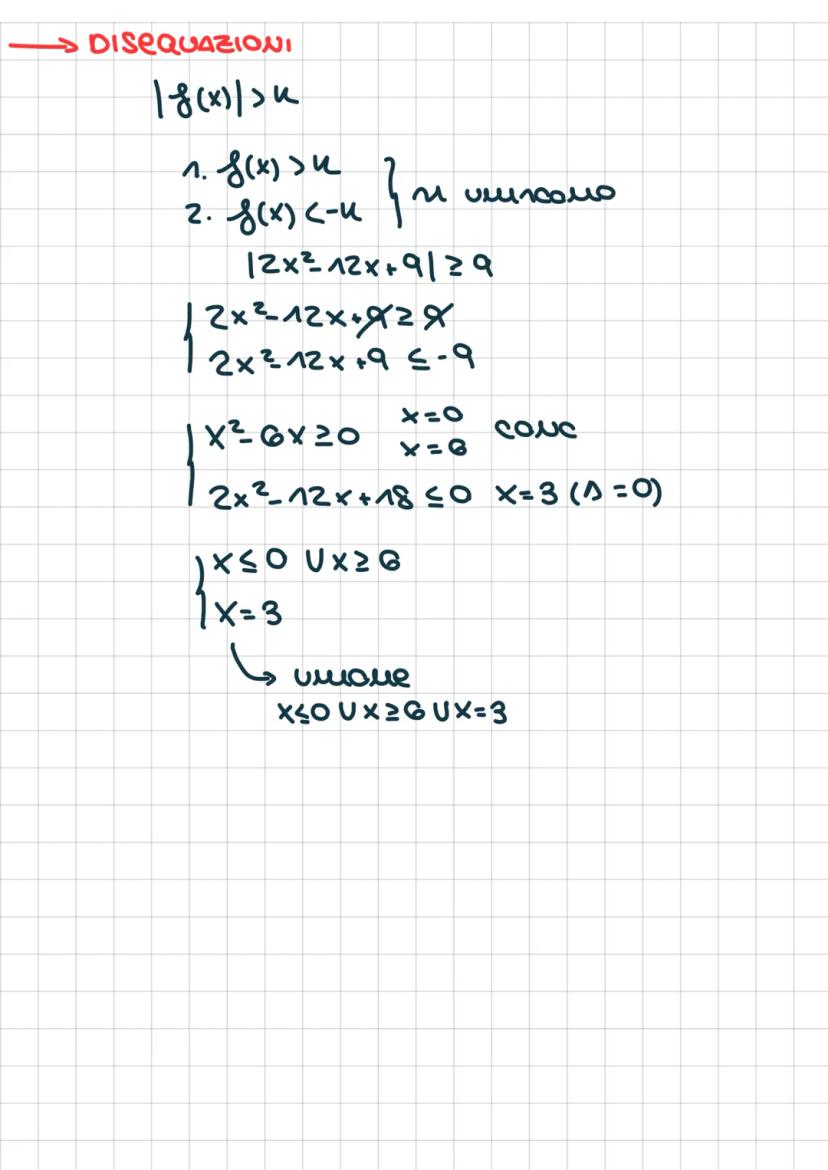 → DISEQUAZIONI
|f(x)|>k
1. f(x) >k
2. f(x) <-k } si uniscono
|2x²-12x+9| ≥ 9
{ 2x²-12x+9 ≥ 9
2x²-12x+9 ≤ -9
{ x²-6x ≥ 0 x=0 x=6 conc
2x²-12x+18 ≤ 0 x=3 (Δ=0)
{ x ≤ 0 ∪ x ≥ 6
x=3
↳ unione
x≤0 ∪ x≥6 ∪ x=3